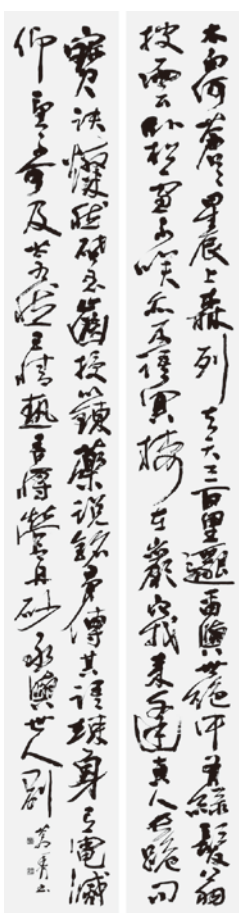 太白何蒼蒼星辰上森列去天三百里邈爾與世絕中有綠髮翁
披雲臥松雪不笑亦不語冥棲在巖穴我來逢真人長跪問
寶訣燦然啟玉齒授以鍊藥說銘骨傳其語竦身已電滅
仰望不可及蒼然五情熱吾將營丹砂永與世人別